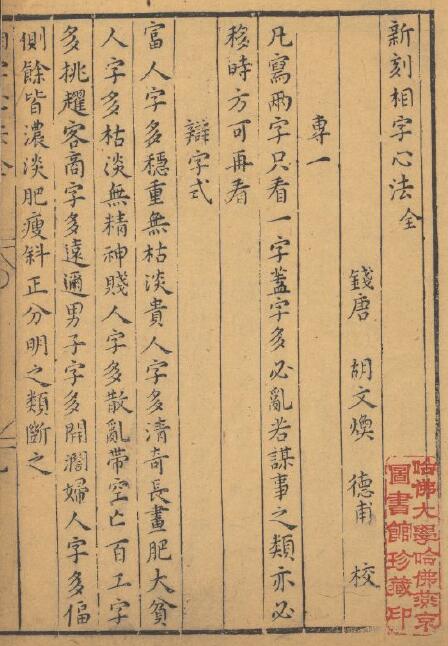 新刻相字心法全
錢唐 胡文煥 德甫 校
專一
凡寫兩字只看一字蓋字多必亂若謀事之類亦必
移時方可再看
辯字式
富人字多穩重無枯淡貴人字多清奇長畫肥大貧
人字多枯淡無精神賤人字多散亂帶空亡百工字
多挑趯客商字多遠邇男子字多開濶婦人字多偪
側餘皆濃淡肥瘦斜正分明之類斷之
哈佛大學哈佛燕京
圖書館珍藏印